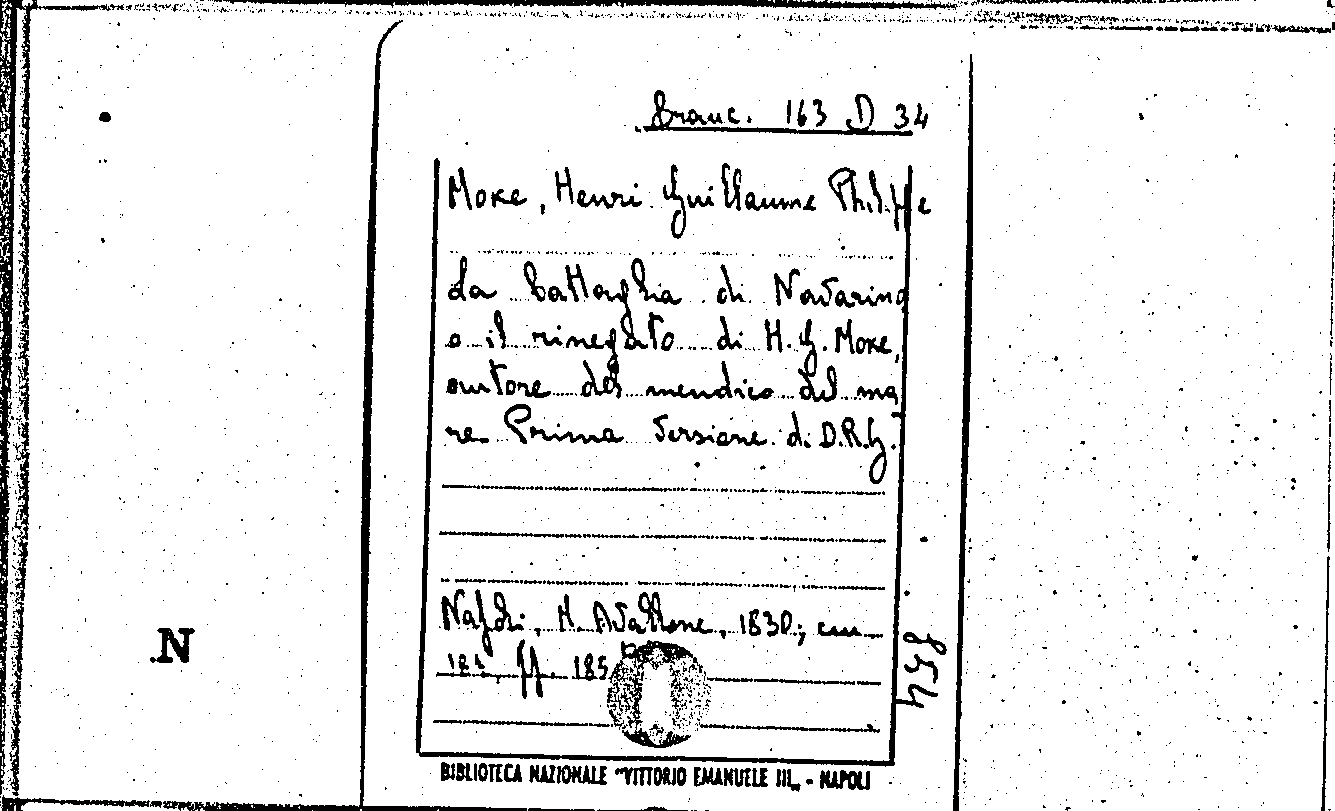 Branc. 163 D 34
Moke, Henri Guillaume Philippe
La battaglia di Navarino
o il rinegato di H. G. Moke,
autore del mendico del ma
re Prima versione di D.R.G.
Napoli, M. Avallone, 1830; cm
pp. 185
854
.N
BIBLIOTECA NAZIONALE "VITTORIO EMANUELE III„ - NAPOLI